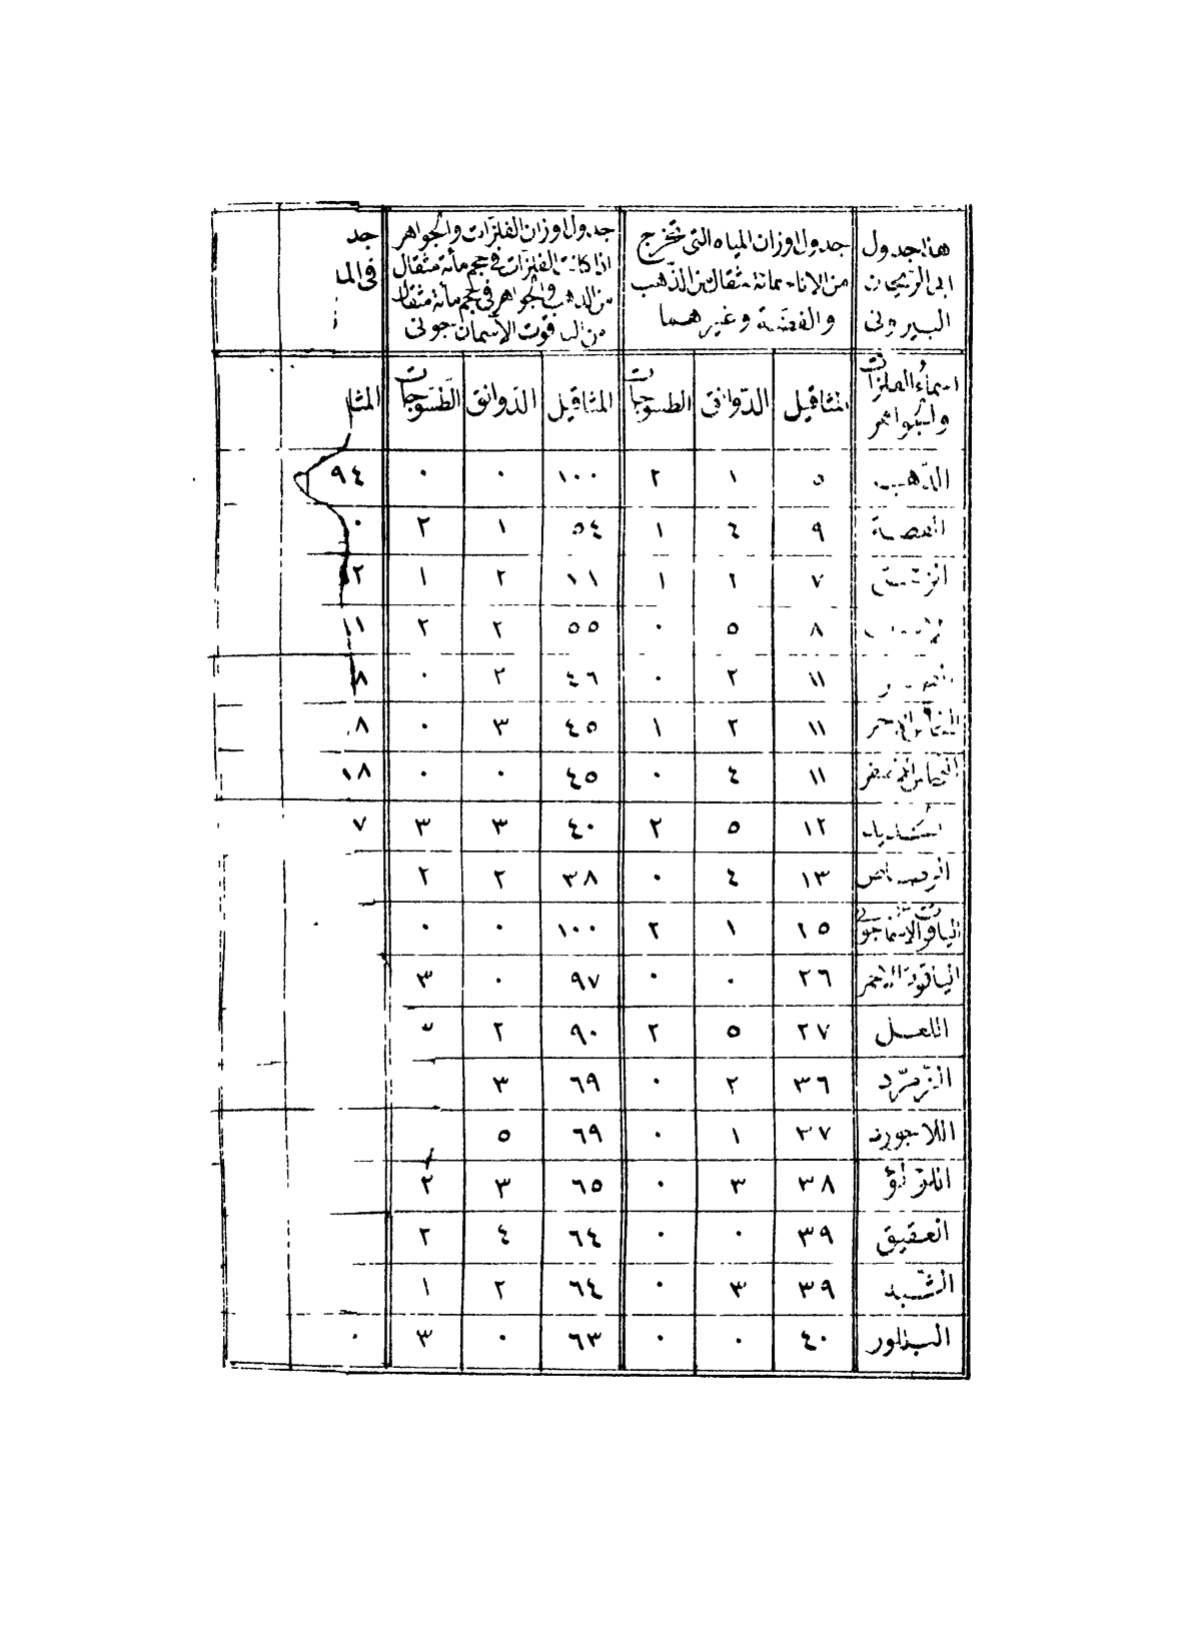 هذا جدول
ابى الريحان
البيرونى
جدول اوزان المياه التى تخرج
من الاناء بمائة مثقال من الذهب
والفضة وغيرهما
جدول اوزان الفلزات والجواهر
اذا كانت الفلزات فى حجم مأئة مثقال
من الذهب والجواهر فى حجم مأئة مثقال
من الياقوت الآسمان جونى
جد
فى الما
اسماء الفلزات والجواهر المثاقيل الدوانق الطسوجات المثاقيل الدوانق الطسوجات المثا
الذهب ٥ ١ ٢ ١٠٠ ٠ ٠ ٩٤
الفضة ٩ ٤ ١ ٥٤ ١ ٢ ٠
٧ ٢ ١ ١١ ٢ ١ ٢
٨ ٥ ٠ ٥٥ ٢ ٢ ١١
١١ ٢ ٠ ٤٦ ٢ ٠ ٨
النحاس الاحمر ١١ ٢ ١ ٤٥ ٣ ٠ ٨
النحاس الاصفر ١١ ٤ ٠ ٤٥ ٠ ٠ ١٨
الحديد ١٢ ٥ ٢ ٤٠ ٣ ٣ ٧
الرصاص ١٣ ٤ ٠ ٣٨ ٢ ٢
الياقوت الاسمانجونى ٢٥ ١ ٢ ١٠٠ ٠ ٠
الياقوت الاحمر ٢٦ ٠ ٠ ٩٧ ٠ ٣
اللعل ٢٧ ٥ ٢ ٩٠ ٢
الزمرّد ٣٦ ٢ ٠ ٦٩ ٣
اللاجورد ٣٧ ١ ٠ ٦٩ ٥
اللؤلؤ ٣٨ ٣ ٠ ٦٥ ٣ ٢
العقيق ٣٩ ٠ ٠ ٦٤ ٤ ٢
الشبد ٣٩ ٣ ٠ ٦٤ ٢ ١
البلور ٤٠ ٠ ٠ ٦٣ ٠ ٣ ٠